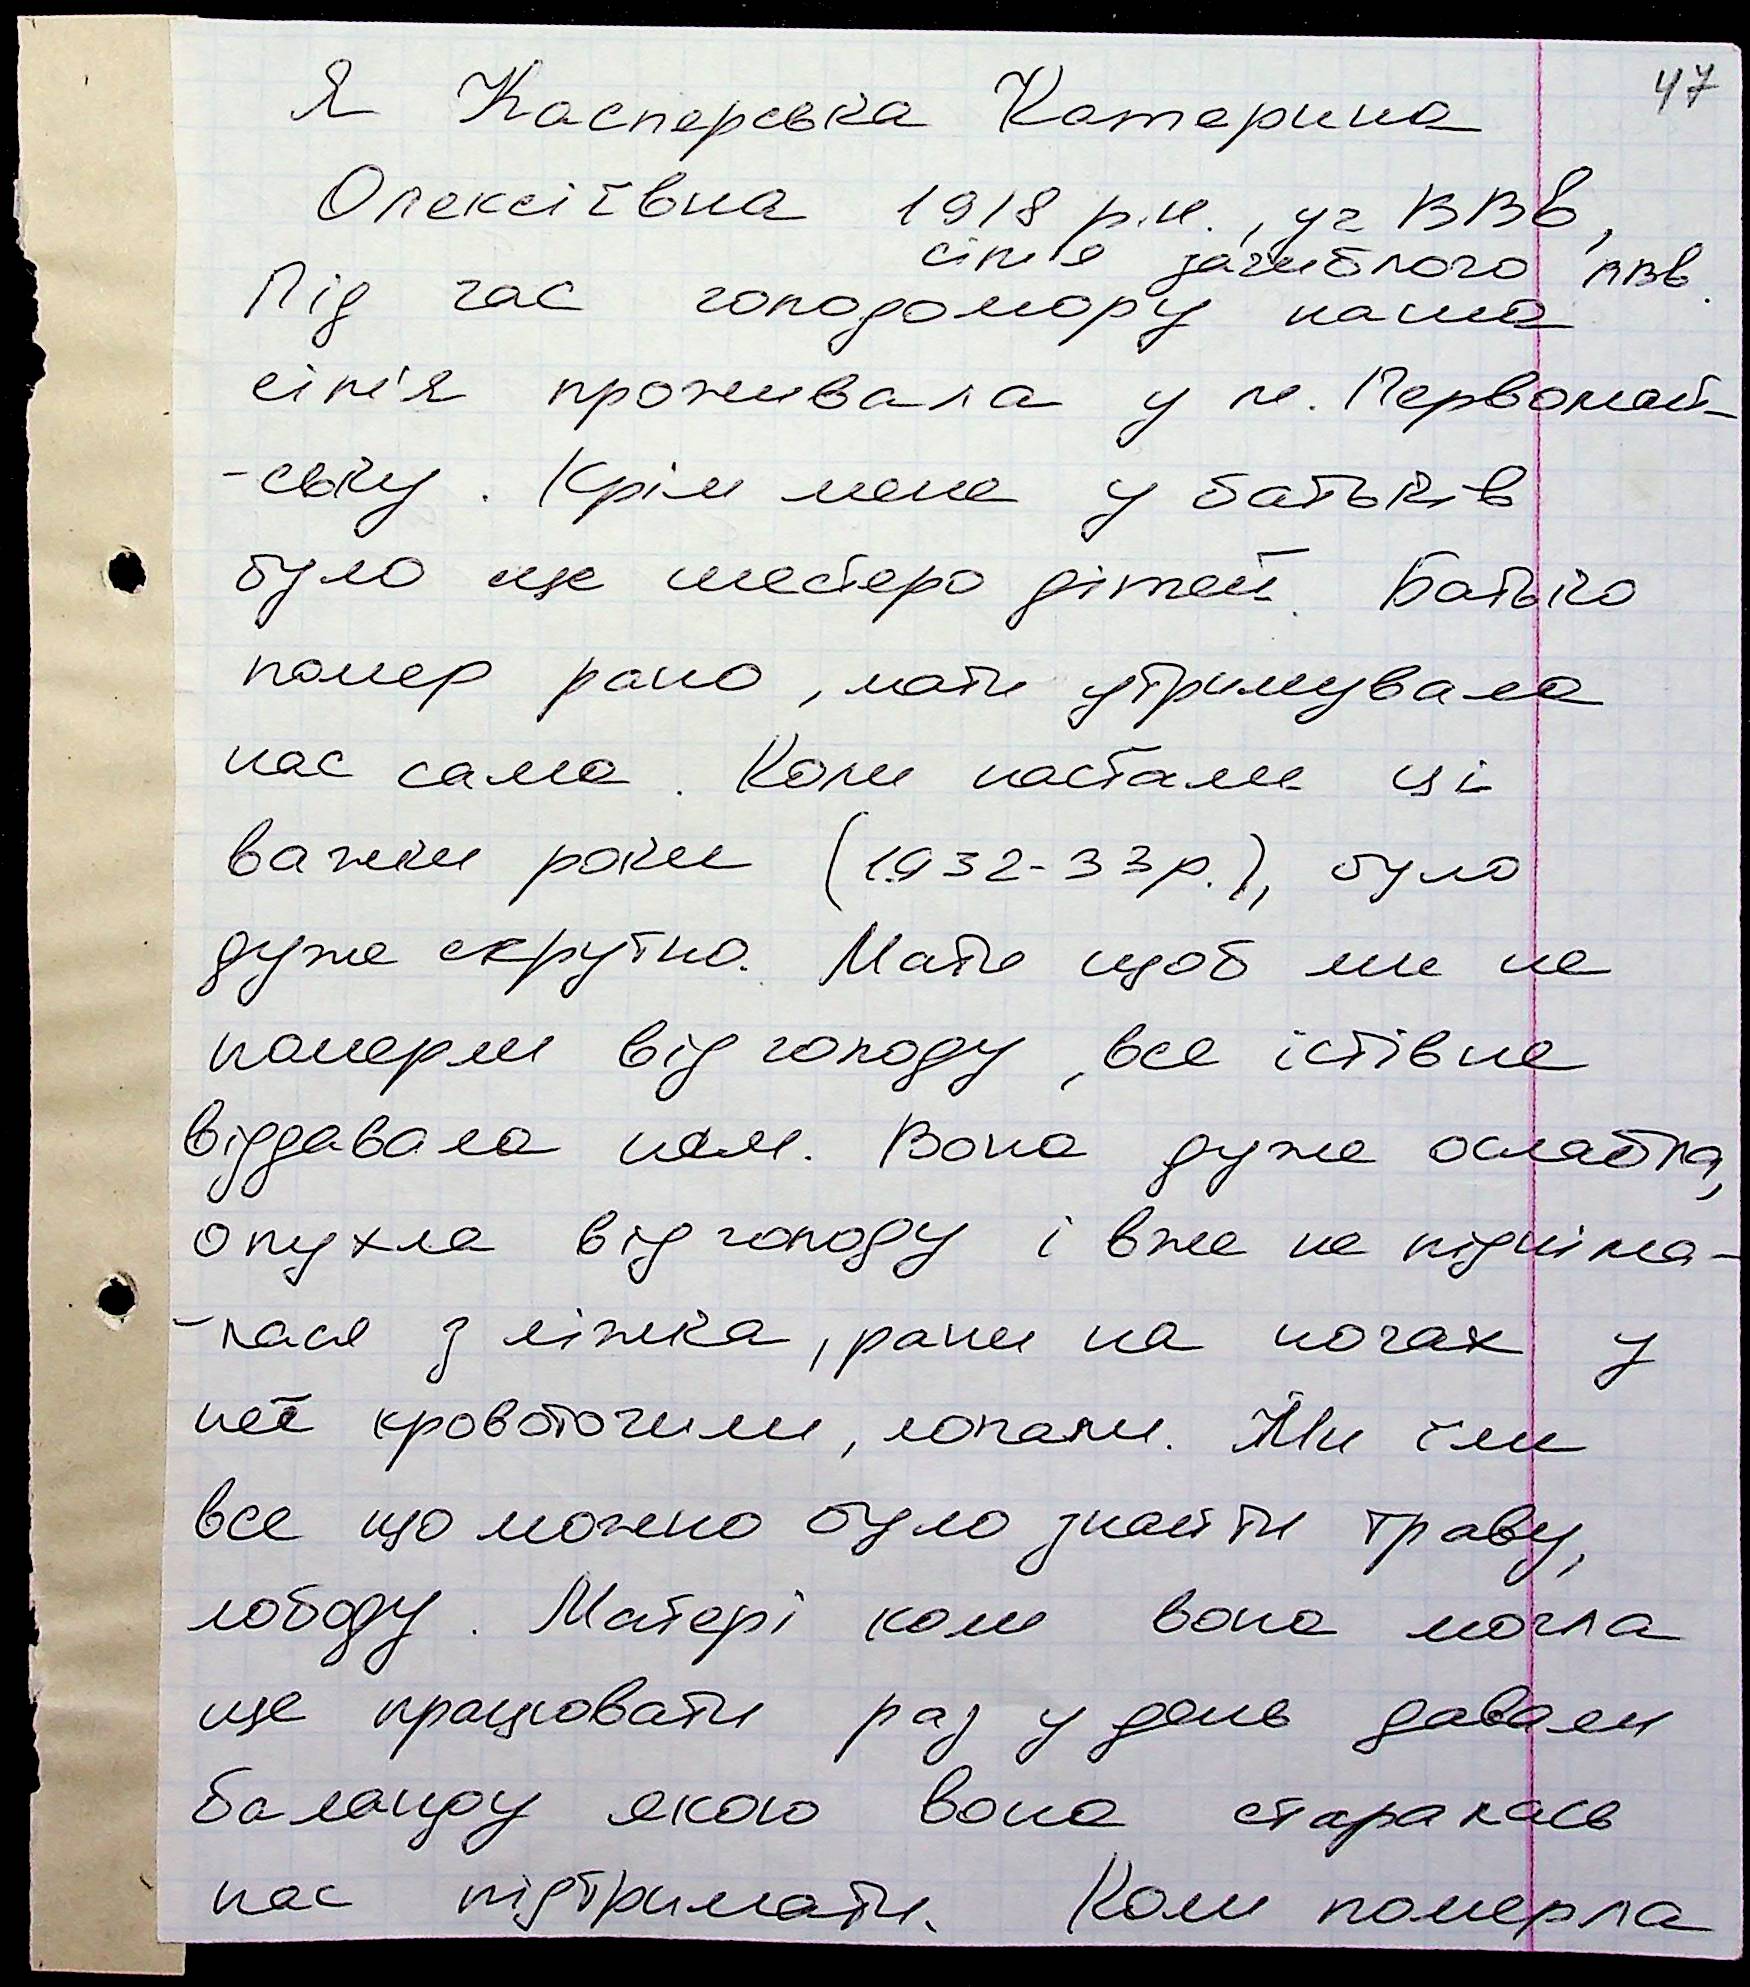 47
Я Касперська Катерина
Олексіївна 1918 р.н., уч ВВв,
сім'я загиблого ВВв.
Під час голодомору наша
сім'я проживала у м. Первомай-
-ську. Крім мене у батьків
було ще шестеро дітей. Батько
помер рано, мати утримувала
нас сама. Коли настали ці
важки роки (1932-33р.), було
дуже скрутно. Мати щоб ми не
померли від голоду, все їстівне
віддавала нам. Вона дуже ослабла,
опухла від голоду і вже не підніма-
-лася з ліжка, рани на ногах у
неї кровоточили, лопали. Ми їли
все що можно було знайти траву,
лободу. Матері коли вона могла
ще працювати раз у день давали
баланду якою вона старалась
нас підтримати. Коли померла